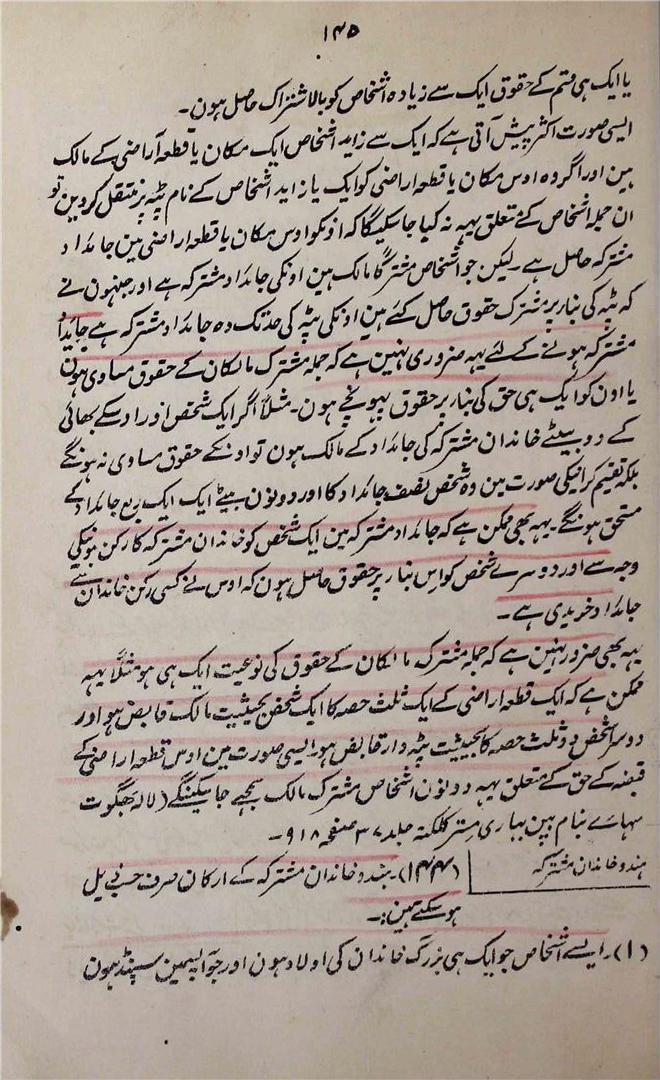 ۱۴۵
یا ایک ہی قسم کے حقوق ایک سے زیادہ اشخاص کو بالاشتراک حاصل ہون۔
ایسی صورت اکثر پیش آتی ہے کہ ایک سے زاید اشخاص ایک مکان یا قطعہ آراضی کے مالک
ہین اور اگر وہ اوس مکان یا قطعہ اراضی کو ایک یا زاید اشخاص کے نام پٹہ پر منتقل کر دین تو
ان جملہ اشخاص کے متعلق یہہ نہ کہا جا سکیگا کہ اونکو اوس مکان یا قطعہ اراضی مین جائداد
مشترکہ حاصل ہے۔ لیکن جو اشخاص مشترکاً مالک ہین اونکی جائداد مشترکہ ہے اور جنہون نے
کہ پٹہ کی بنا پر مشترک حقوق حاصل کئے ہین اونکی پٹہ کی حد تک وہ جائداد مشترکہ ہے جائداد
مشترکہ ہونے کے لئے یہہ ضروری نہین ہے کہ جملہ مشترک مالکان کے حقوق مساوی ہون
یا اون کو ایک ہی حق کی بنا پر حقوق پہونچے ہون۔ مثلاً اگر ایک شخص اور اوسکے بھائی
کے دو بیٹے خاندان مشترکہ کی جائداد کے مالک ہون تو اونکے حقوق مساوی نہ ہونگے
بلکہ تقسیم کرانیکی صورت مین وہ شخص نصف جائداد کا اور دونون بیٹے ایک ایک ربع جائداد کے
مستحق ہونگے۔ یہہ بھی ممکن ہے کہ جائداد مشترکہ مین ایک شخص کو خاندان مشترکہ کا رکن ہونیکی
وجہ سے اور دوسرے شخص کو اس بنا پر حقوق حاصل ہون کہ اوس نے کسی رکن خاندان سے
جائداد خریدی ہے۔
یہہ بھی ضرور نہین ہے کہ جملہ مشترک مالکان کے حقوق کی نوعیت ایک ہی ہو مثلاً یہہ
ممکن ہے کہ ایک قطعہ اراضی کے ایک ثلث حصہ کا ایک شخص بحیثیت مالک قابض ہو اور
دوسرا شخص دو ثلث حصہ کا بحیثیت پٹہ دار قابض ہو ایسی صورت مین اوس قطعہ اراضی کے
قبضہ کے حق کے متعلق یہہ دونون اشخاص مشترک مالک سمجھے جا سکینگے (لالہ بھگوت
سہاے بنام بپن بہاری متر کلکتہ جلد ۳۷ صفحہ ۹۱۸۔
ہندو خاندان مشترکہ
(۱۴۴)۔ ہندو خاندان مشترکہ کے ارکان صرف حسب ذیل
ہو سکتے ہین:۔
(۱)۔ ایسے اشخاص جو ایک ہی بزرگ خاندان کی اولاد ہون اور جو آپسمین سپنڈ ہون